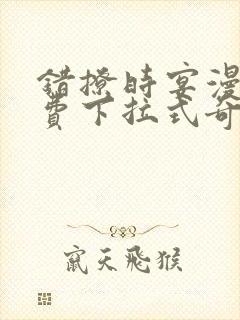 错撩时宴漫
费下拉式奇
窜天飛猴